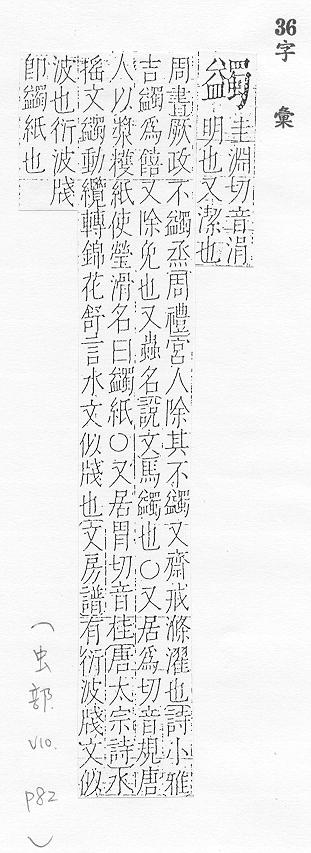 36
字彙
蠲 圭淵切音涓
明也又潔也
周書厥政不蠲烝周禮宮人除其不蠲又齋戒滌濯也詩小雅
吉蠲爲饎又除免也又蟲名說文馬蠲也○又居爲切音規唐
人以漿㯡紙使瑩滑名曰蠲紙○又居胃切音桂唐太宗詩水
搖文蠲動纜轉錦花舒言水文似牋也文房譜有衍波牋文似
波也衍波牋
卽蠲紙也
(虫部
V10.
P82
)